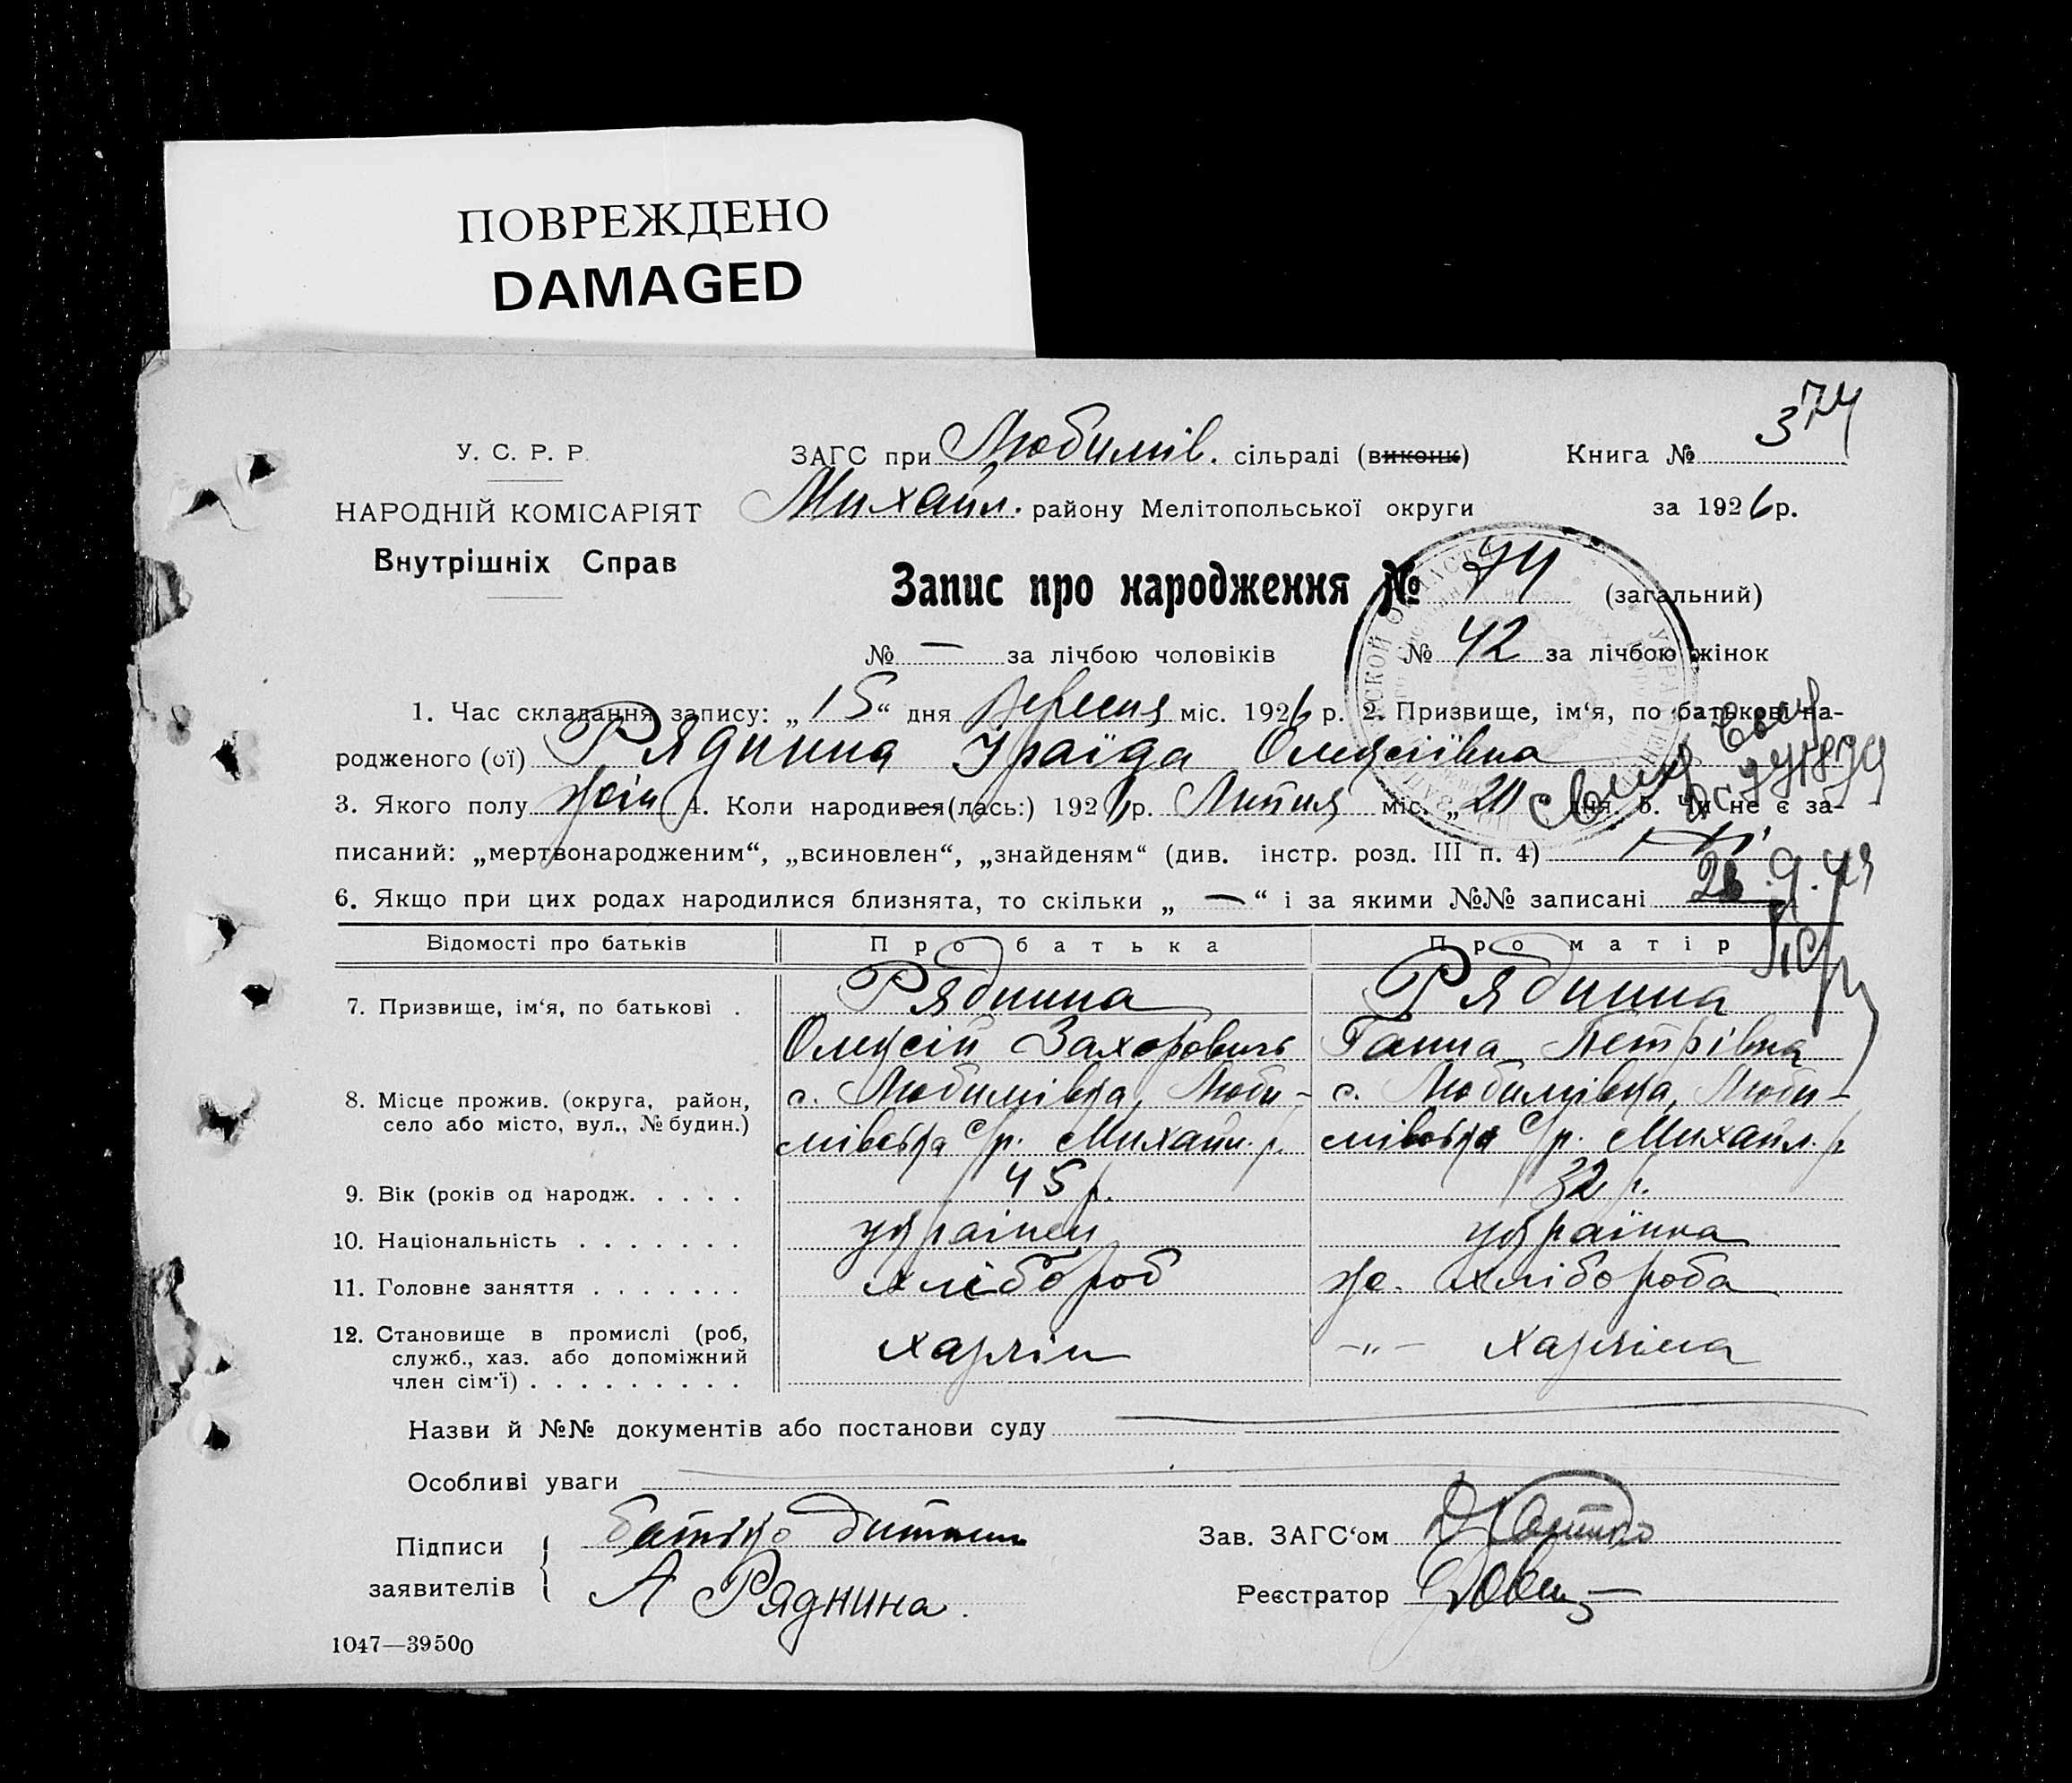 ПОВРЕЖДЕНО
DAMAGED
374
У. С. Р. Р.
ЗАГС при Любимів. сільраді (виконк)
Книга №
НАРОДНІЙ КОМІСАРІЯТ
Михайл. району Мелітопольської округи
за 1926 р.
Внутрішніх Справ
Запис про народження № 74 (загальний)
№ — за лічбою чоловіків № 42 за лічбою жінок
1. Час складання запису: „15“ дня Вересня міс. 1926 р. 2. Призвище, ім‘я, по батькові на-
родженого (ої) Ряднина Іраїда Олексіївна
3. Якого полу жін 4. Коли народився (лась:) 1926 р. Липня міс. „20 дня. 5. Чи не є за-
писаний: „мертвонародженим“, „всиновлен“, „знайденям“ (див. інстр. розд. III п. 4) Ні
6. Якщо при цих родах народилися близнята, то скільки „ — “ і за якими №№ записані
Відомості про батьків
Про батька
Про матір
7. Призвище, ім‘я, по батькові .
Ряднина
Олексій Захорович
Ряднина
Ганна Петрівна
8. Місце прожив. (округа, район,
село або місто, вул., № будин.)
с. Любимівка, Люби-
мівська с/р. Михайл. р.
с. Любимівка, Люби-
мівська с/р. Михайл. р.
9. Вік (років од народж. . . . .
45 р.
32 р.
10. Національність . . . . . . .
українец
українка
11. Головне заняття . . . . . . .
хлібороб
ж. хлібороба
12. Становище в промислі (роб,
служб., хаз. або допоміжний
член сім‘ї) . . . . . . . . .
харзяін
-„- харзяіна
Назви й №№ документів або постанови суду
Особливі уваги
Підписи
заявителів
батько дитини
А Ряднина.
Зав. ЗАГС‘ом
Реєстратор
1047—39500